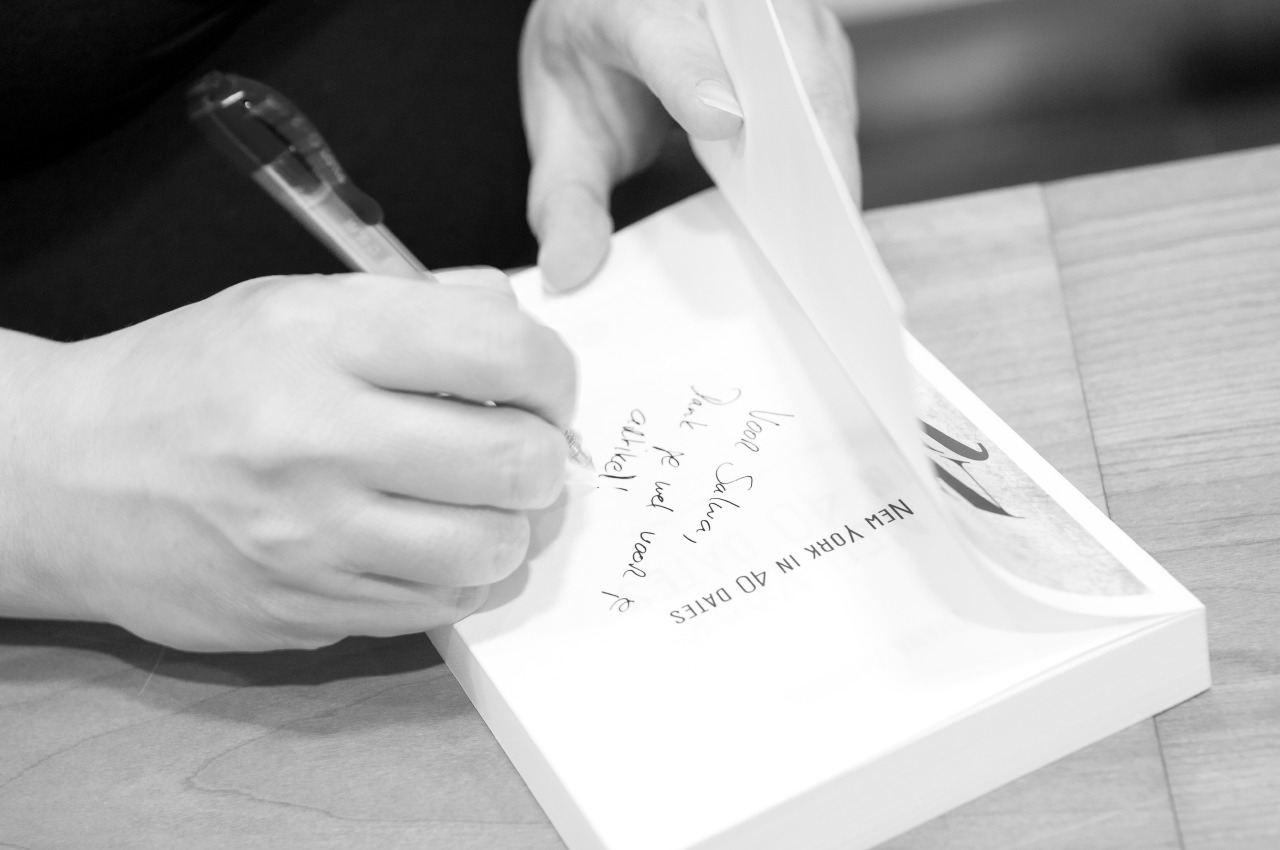 NEW YORK IN 40 DATES
Voor Salwa,
Dank je wel voor je
artikel!